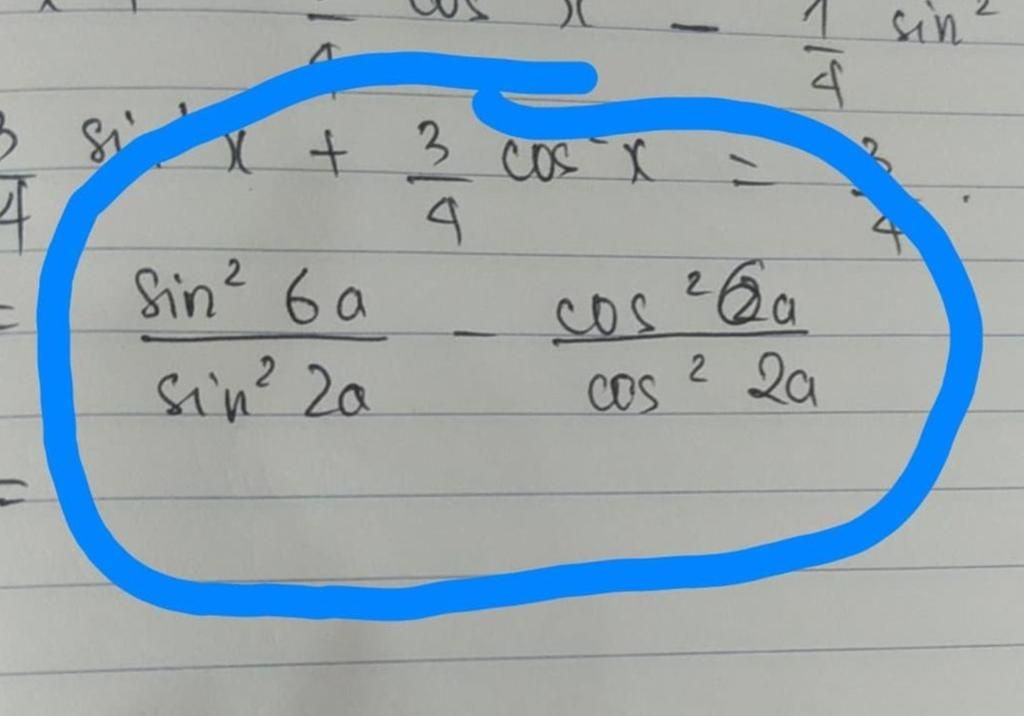 cos x - 1/4 sin²
3/4 sin² x + 3/4 cos² x = 3/4 .
= sin² 6a / sin² 2a - cos² 6a / cos² 2a
=